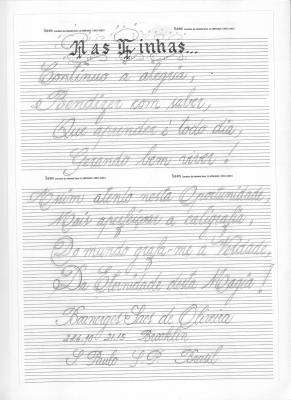 Nas Linhas...
Contínuo a alegria,
Bendizer com saber,
Que aprender é todo dia,
Gerando bem viver!
Assim atento nesta Oportunidade,
Mais aperfeiçoar a caligrafia,
Do mundo grafa-me a Verdade,
Da Eternidade desta Magia!
Boanerges Saes de Oliveira
Brooklin
S Paulo S.P. Brasil